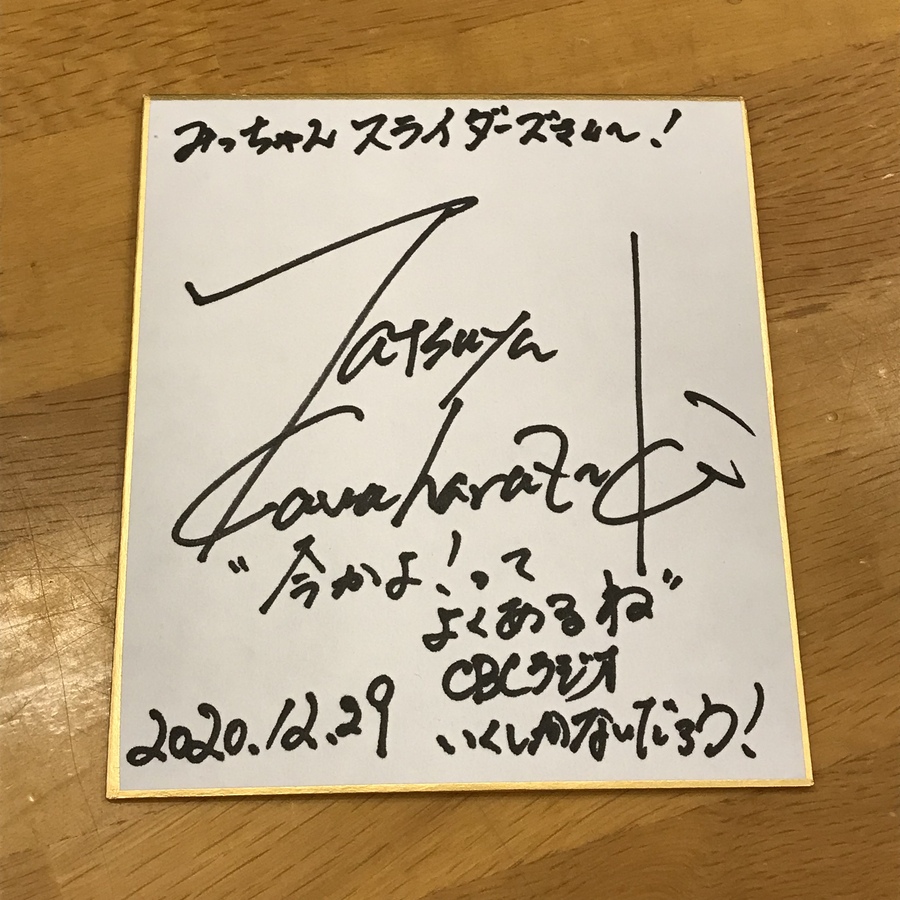 みっちゃんスライダーズさん〜!
Tatsuya
Kawaharazuka
"今かよ!って
よくあるね"
CBCラジオ
いくしかないだろう!
2020.12.29